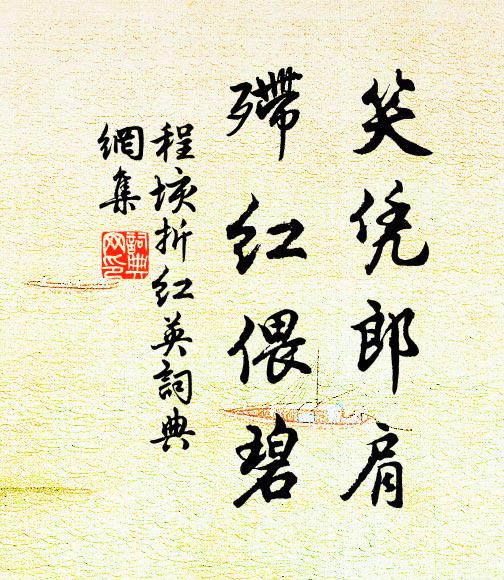 笑凭郎肩
殢红偎碧
程垓折红英詞典
網集
詞典
网印